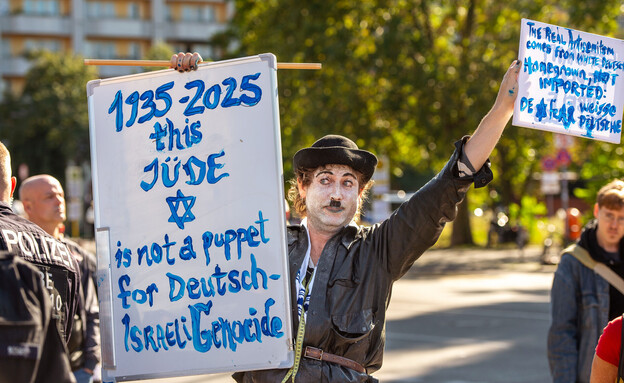 1935-2025
this
JÜDE
is not a puppet
for Deutsch-
ISRAELi GENOCIDE
THE REAL Antisemitism
comes from white Deutsch
Homegrown, NOT
IMPORTED:
weisse
DEUTSCHE
POLIZEI